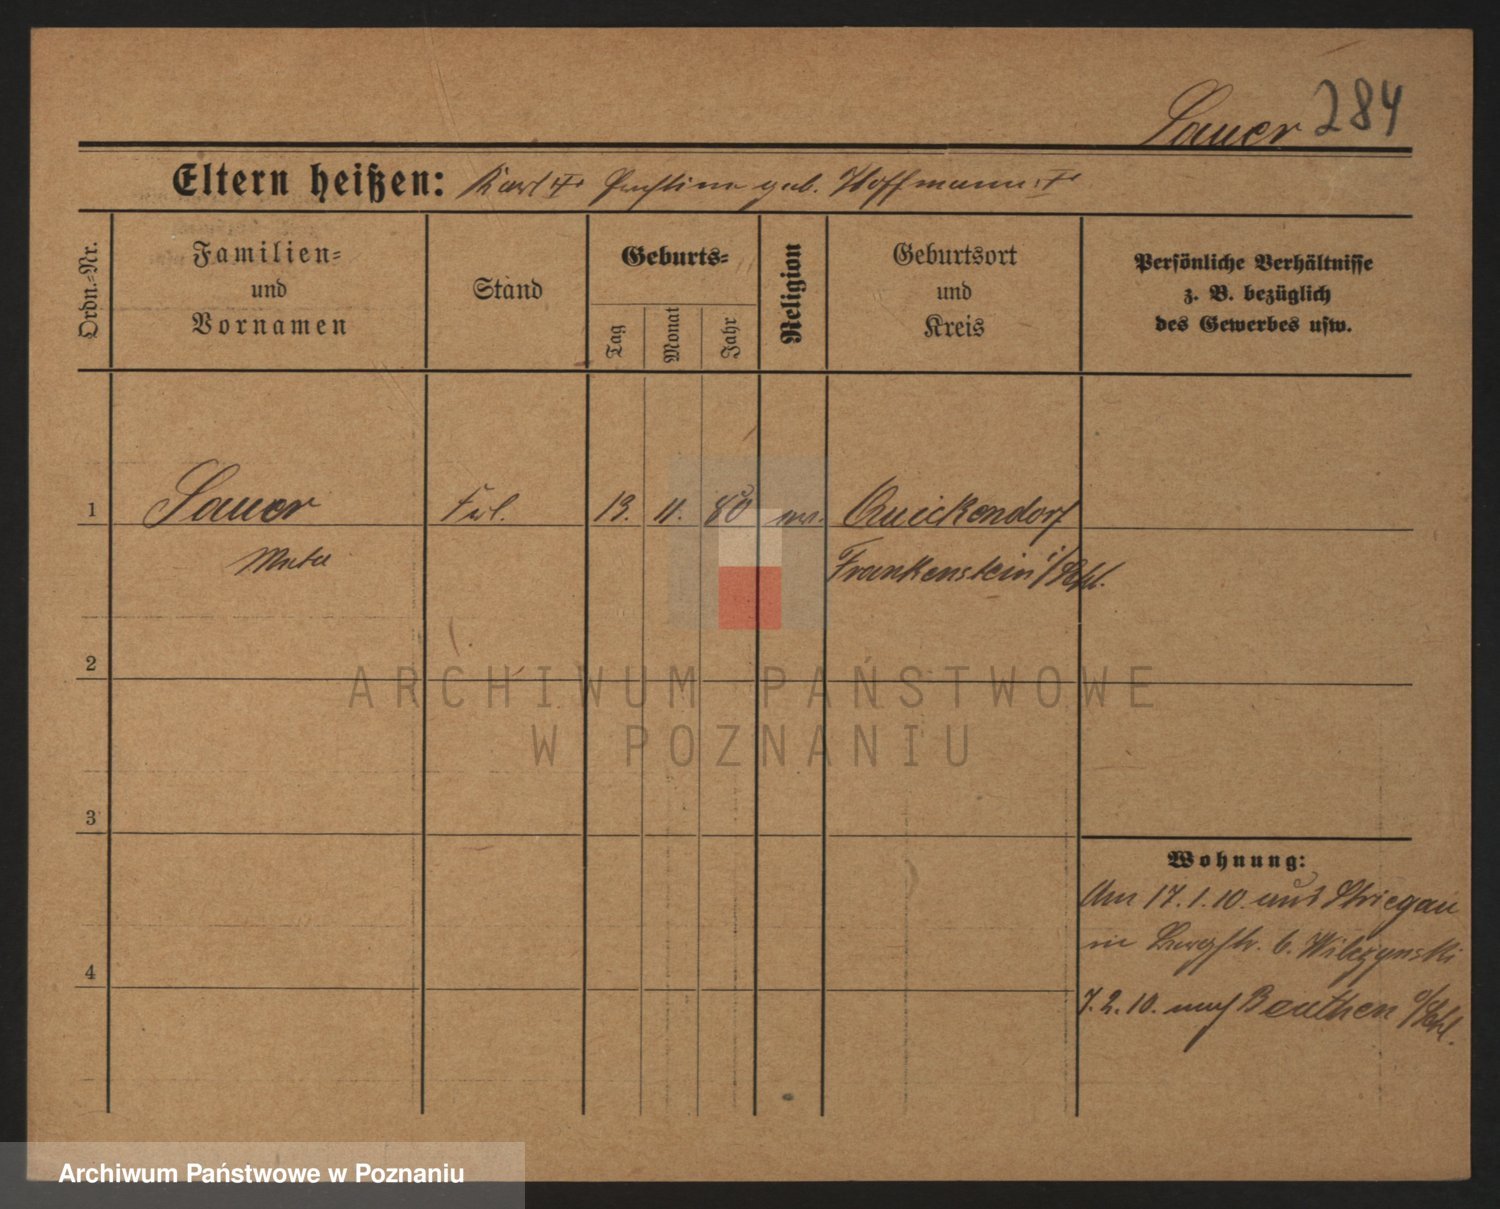 Sauer 284
Eltern heißen: Karl geb. Hoffmann
Ordn.-Nr.
Familien=
und
Vornamen
Stand
Geburts=
Tag
Monat
Jahr
Religion
Geburtsort
und
Kreis
Persönliche Verhältnisse
z. B. bezüglich
des Gewerbes usw.
1 Sauer Frl. 13. 11. 80 Quickendorf
Frankenstein i/Schl.
2
ARCHIWUM PAŃSTWOWE
W POZNANIU
3
Wohnung:
Am 17.1.10. aus Striegau
in Burgstr. b. Wilczynski
4
7.2.10. nach Beuthen o/Schl.
Archiwum Państwowe w Poznaniu